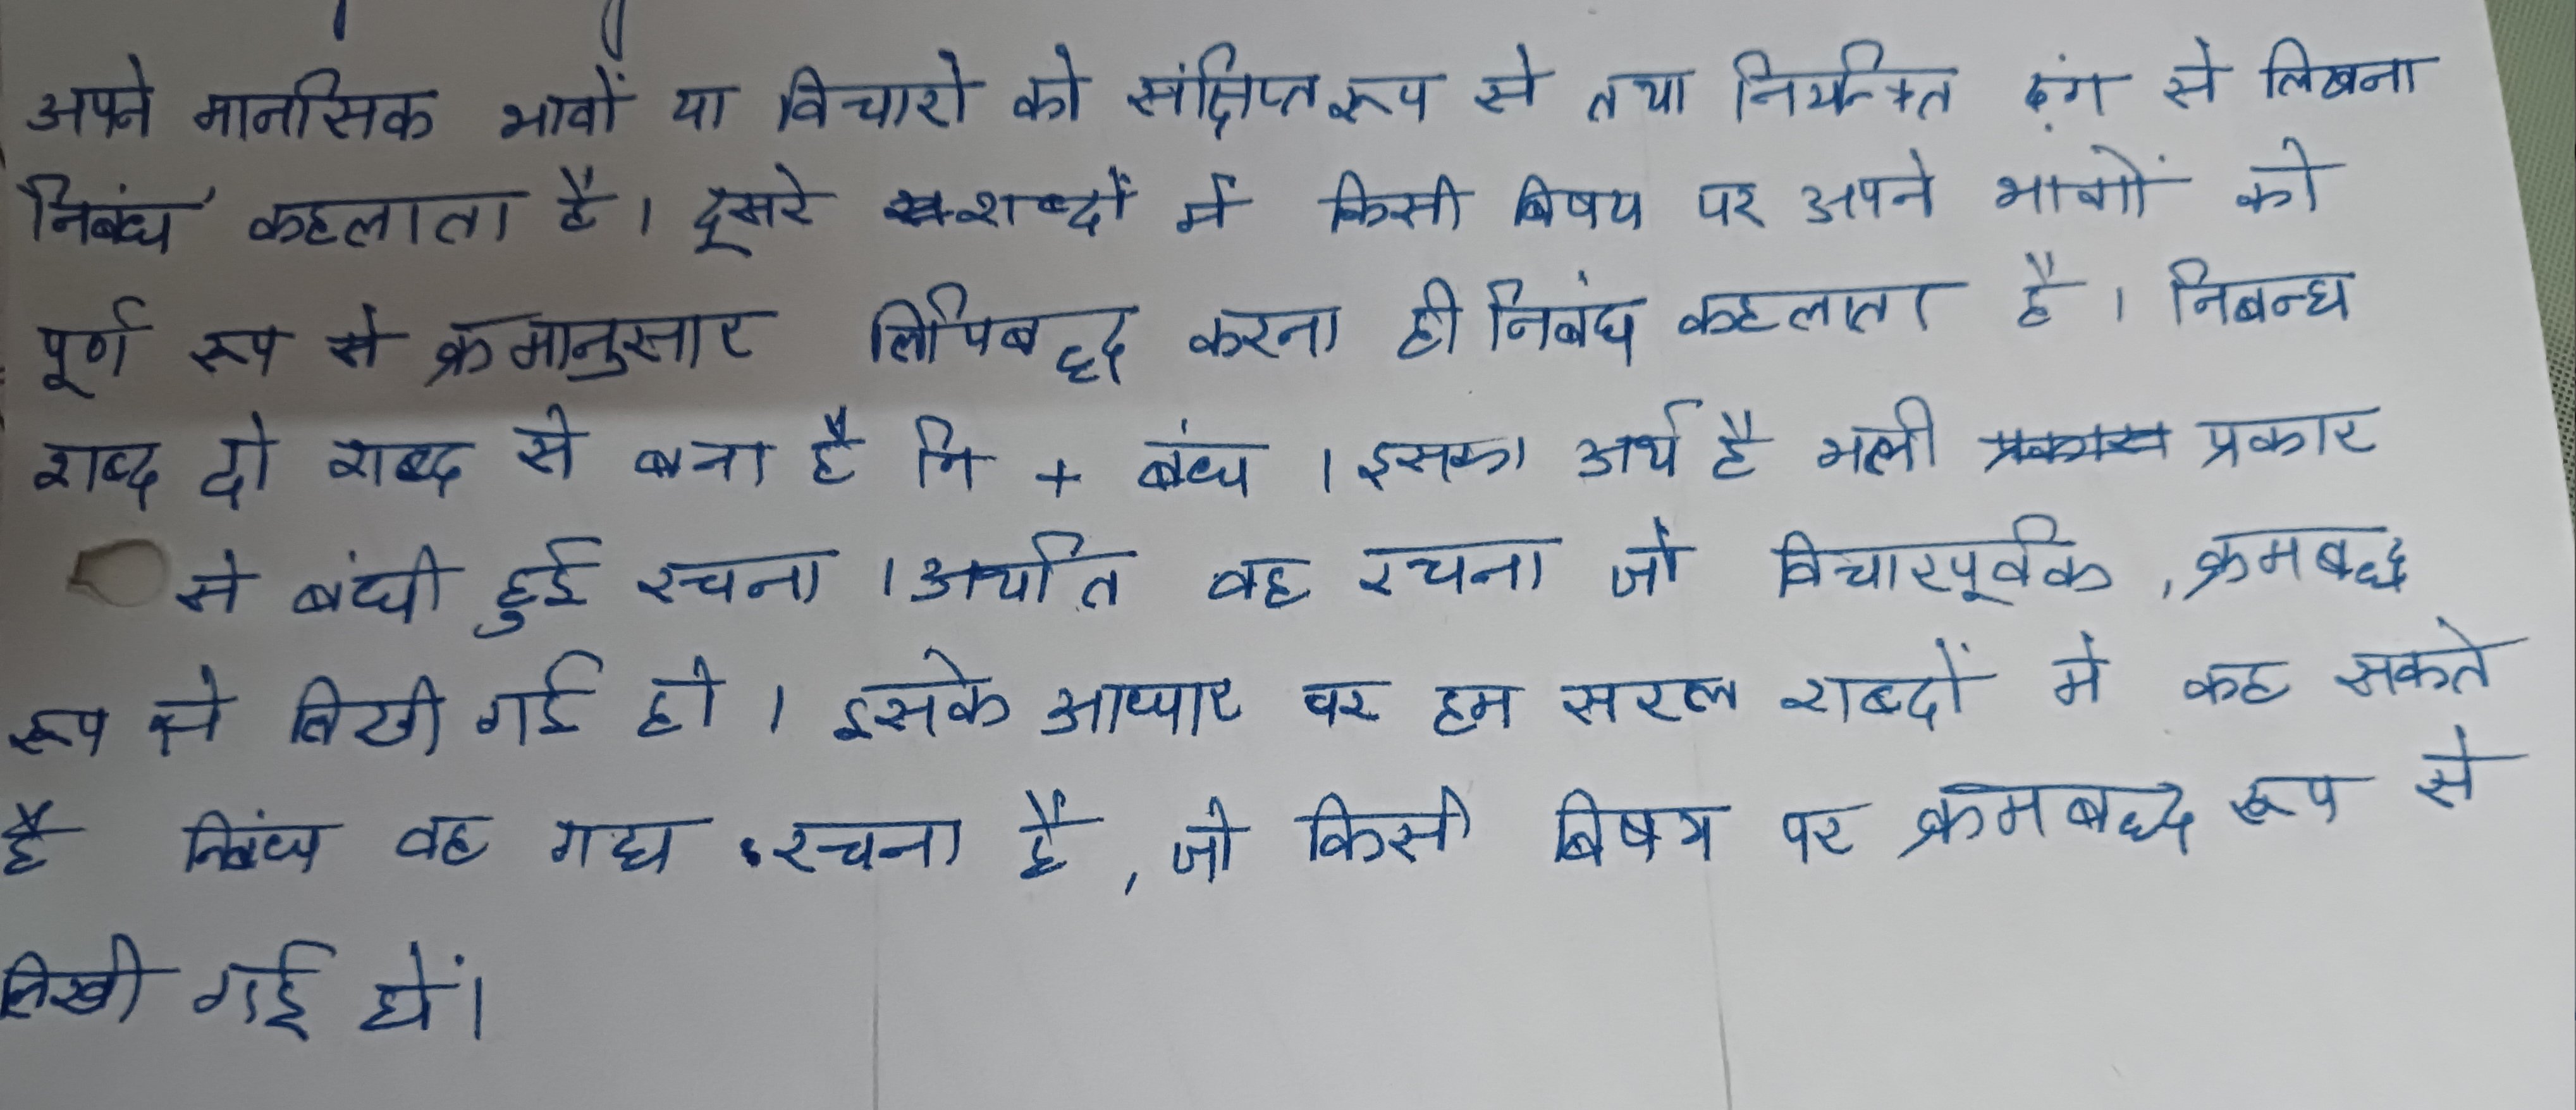 अपने मानसिक भावों या विचारो को संक्षिप्त रूप से तथा नियन्त्रित ढंग से लिखना
निबंध कहलाता है। दूसरे शब्दों में किसी बिषय पर अपने भावों को
पूर्ण रूप से क्रमानुसार लिपिबद्ध करना ही निबंध कहलाता है। निबन्ध
शब्द दो शब्द से बना है नि + बंध। इसका अर्थ है भली प्रकार
से बंधी हुई रचना। अर्थात वह रचना जो विचारपूर्वक, क्रमबद्ध
रूप से लिखी गई हो। इसके आधार पर हम सरल शब्दों मे कह सकते
है निबंध वह गद्य रचना है, जो किसी बिषय पर क्रमबद्ध रूप से
लिखी गई हों।